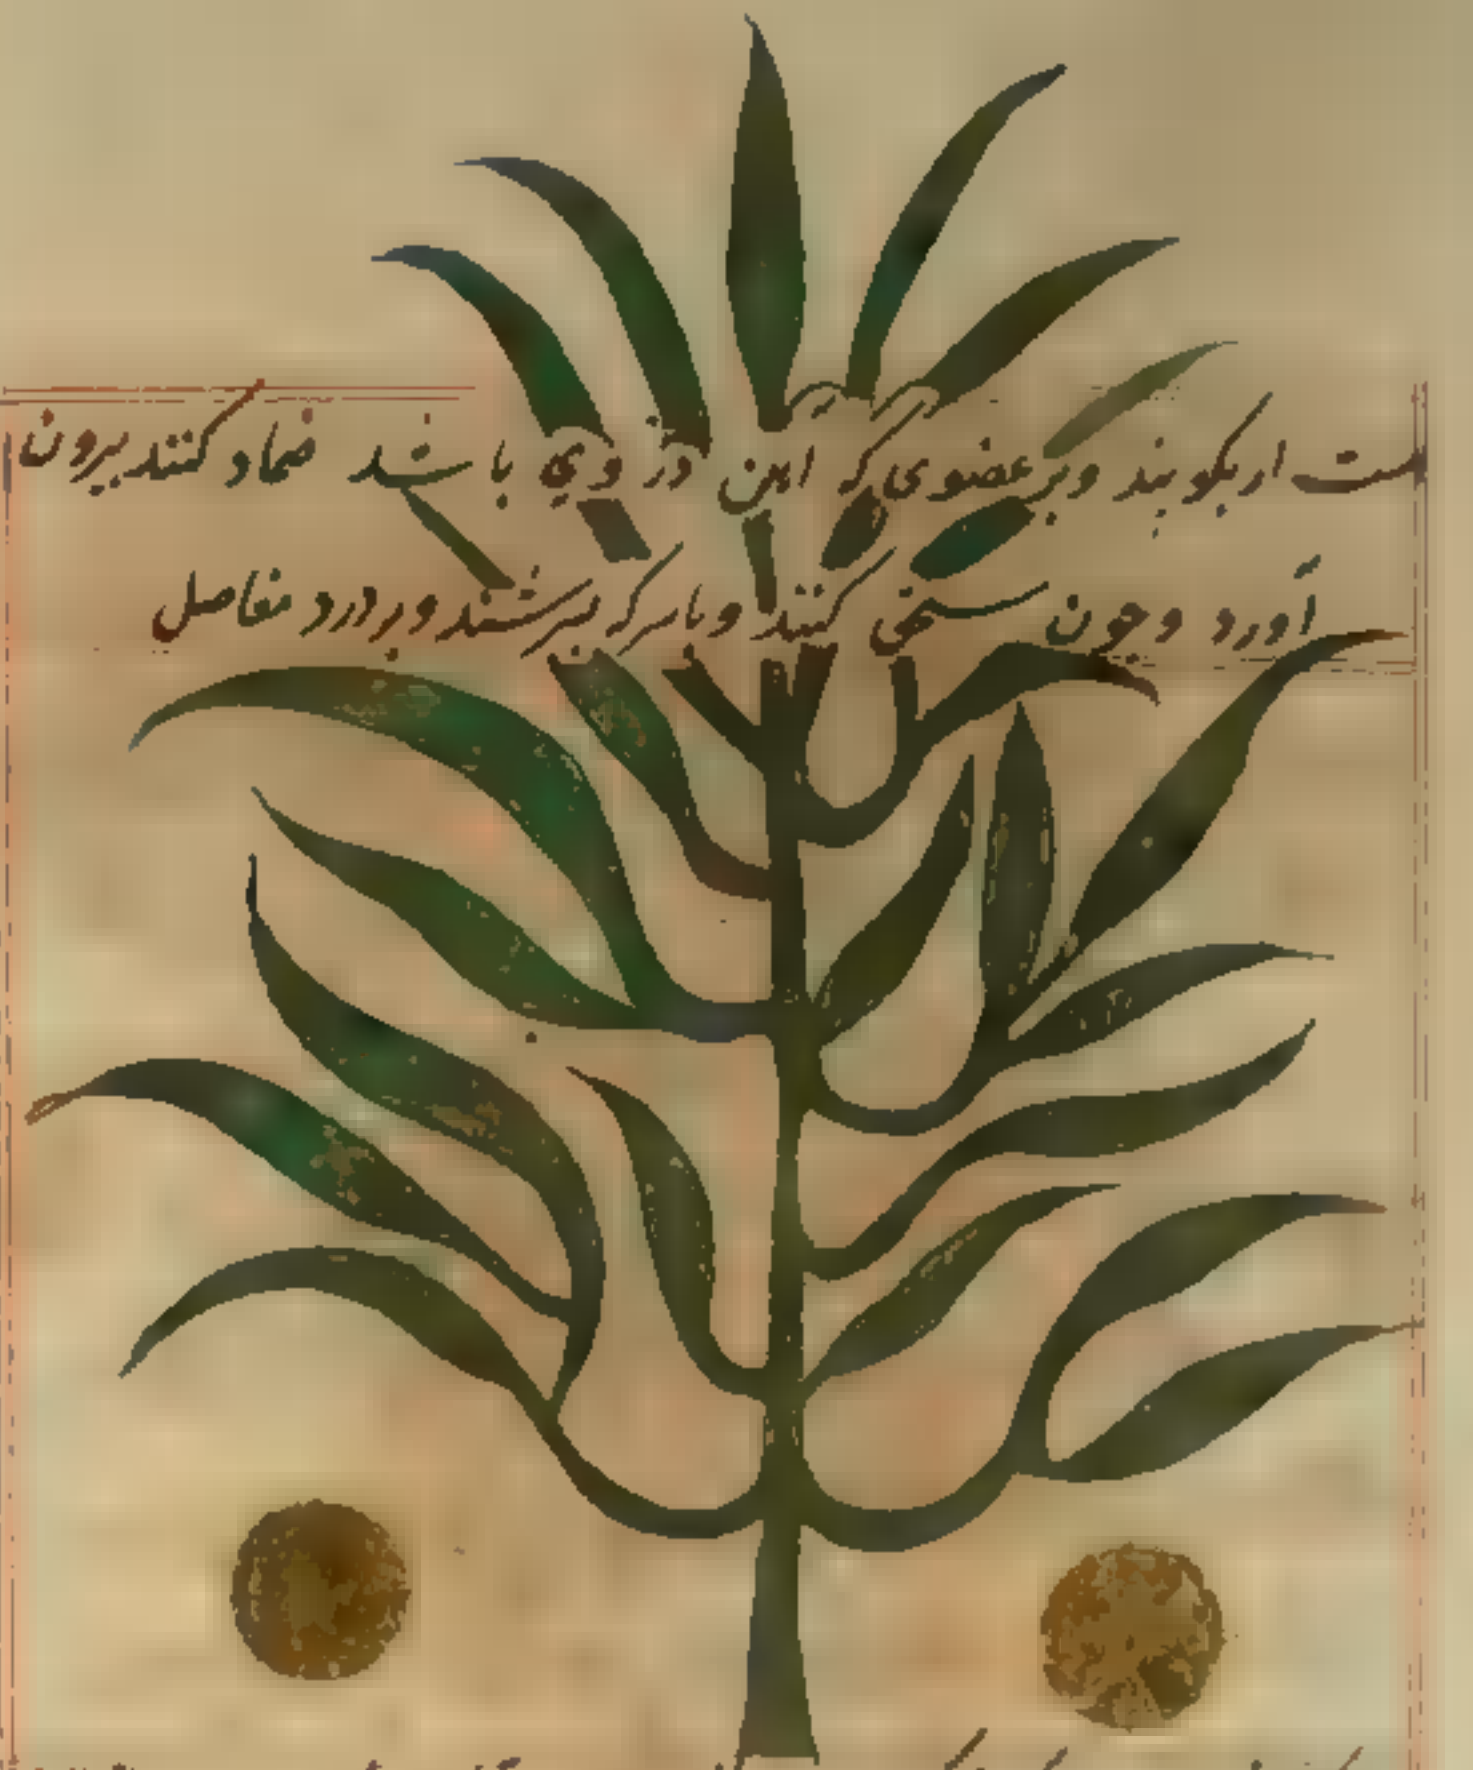 هست ار بکوبند وبر عضوی که اهن در وي باشد ضماد کنند بیرون
آورد وچون سحق کنند وبا سرکه بسرشند وبر درد مفاصل